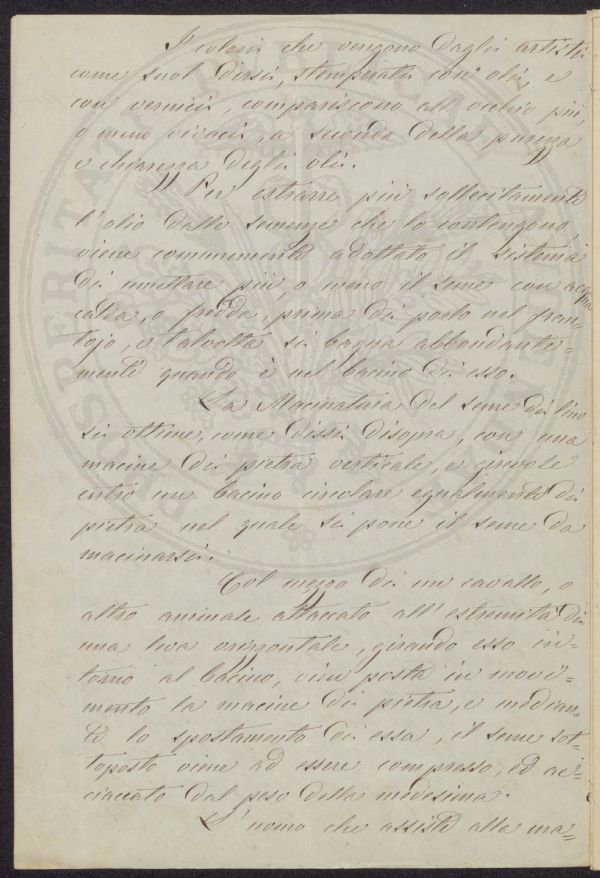 I colori che vengono dagli artisti
come suol dirsi, stemperati con olii, e
con vernici, compariscono all'occhio più,
o meno vivaci, a seconda della purezza
e chiarezza degli olii.
Per estrarre più sollecitamente
l'olio dalle semenze che lo contengono,
viene comunemente adottato il sistema
di umettare più, o meno il seme con acqua
calda, o fredda, prima di porlo nel fran-
tojo, e talvolta si bagna abbondante-
mente quando è nel bacino di esso.
La Macinatura del seme di lino
si ottiene, come dissi disopra, con una
macine di pietra verticale, e girevole
entro un bacino circolare egualmente di
pietra nel quale si pone il seme da
macinarsi.
Col mezzo di un cavallo, o
altro animale attaccato all'estremità di
una leva orizzontale, girando esso in-
torno al bacino, vien posta in movi-
mento la macine di pietra, e median-
te lo spostamento di essa, il seme sot-
toposto viene ad essere compresso, ed ac-
ciaccato dal peso della medesima.
L'uomo che assiste alla ma-
PROSPERITATI PUBLICAE